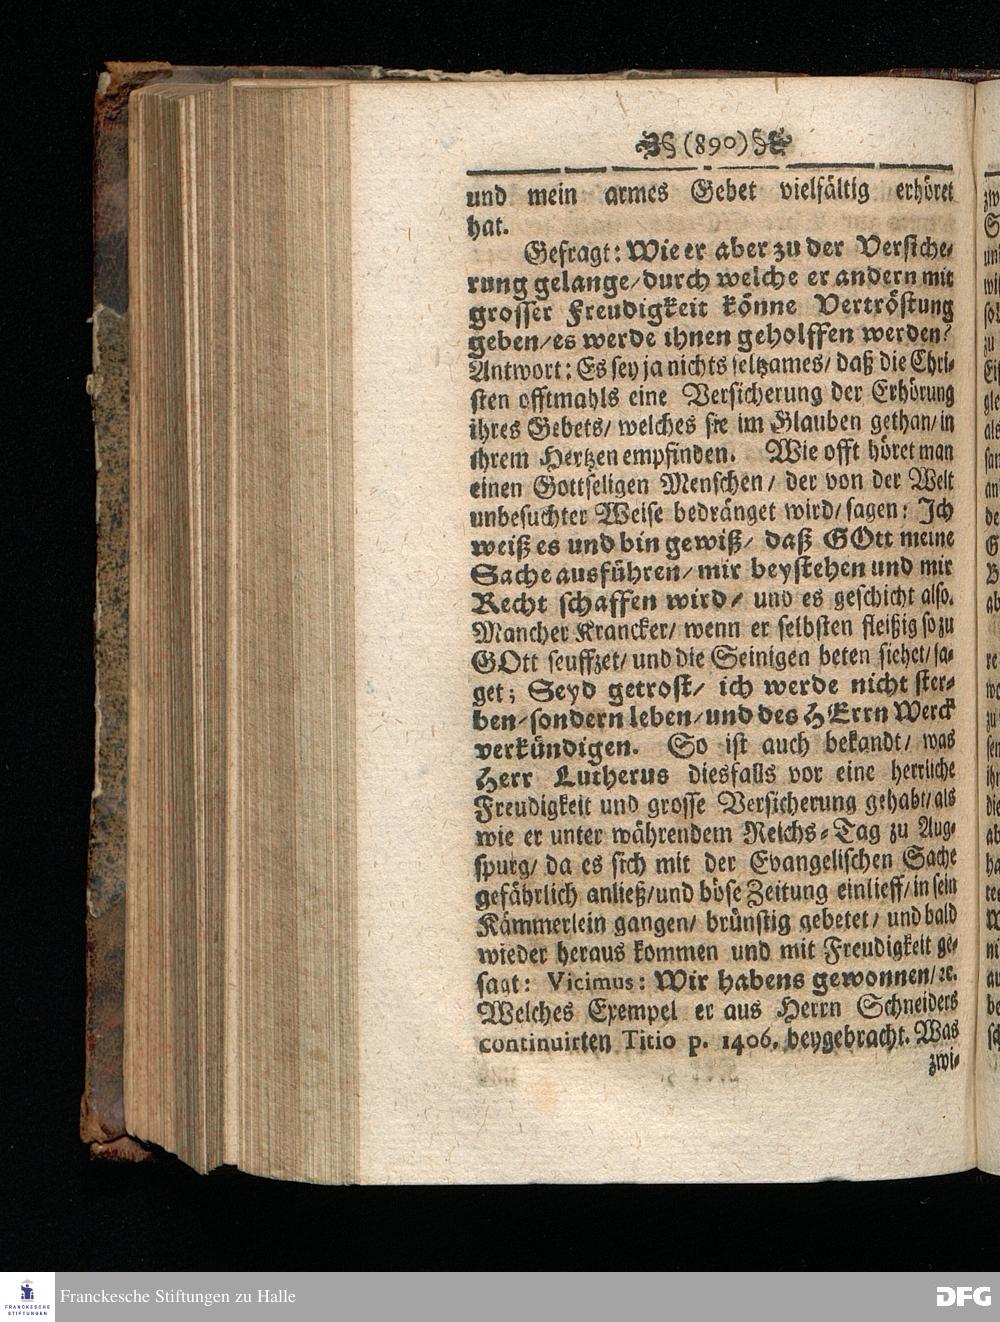 (890)
und mein armes Gebet vielfältig erhöret
hat.
Gefragt: Wie er aber zu der Versiche-
rung gelange/durch welche er andern mit
grosser Freudigkeit könne Vertröstung
geben/es werde ihnen geholffen werden?
Antwort: Es sey ja nichts seltzames/ daß die Chri-
sten offtmahls eine Versicherung der Erhörung
ihres Gebets/ welches sie im Glauben gethan/ in
ihrem Hertzen empfinden. Wie offt höret man
einen Gottseligen Menschen/ der von der Welt
unbesuchter Weise bedränget wird/ sagen: Ich
weiß es und bin gewiß/ daß GOtt meine
Sache ausführen/ mir beystehen und mir
Recht schaffen wird/ und es geschicht also.
Mancher Krancker/ wenn er selbsten fleißig so zu
GOtt seuffzet/ und die Seinigen beten siehet/ sa-
get; Seyd getrost/ ich werde nicht ster-
ben/sondern leben/und des HErrn Werck
verkündigen. So ist auch bekandt/ was
Herr Lutherus diesfalls vor eine herrliche
Freudigkeit und grosse Versicherung gehabt/als
wie er unter währendem Reichs-Tag zu Aug-
spurg/ da es sich mit der Evangelischen Sache
gefährlich anließ/und böse Zeitung einlieff/in sein
Kämmerlein gangen/ brünstig gebetet/ und bald
wieder heraus kommen und mit Freudigkeit ge-
sagt: Vicimus: Wir habens gewonnen/ ꝛc.
Welches Exempel er aus Herrn Schneiders
continuirten Titio p. 1406. beygebracht. Was
zwi-
FRANCKESCHE
STIFTUNGEN
Franckesche Stiftungen zu Halle
DFG